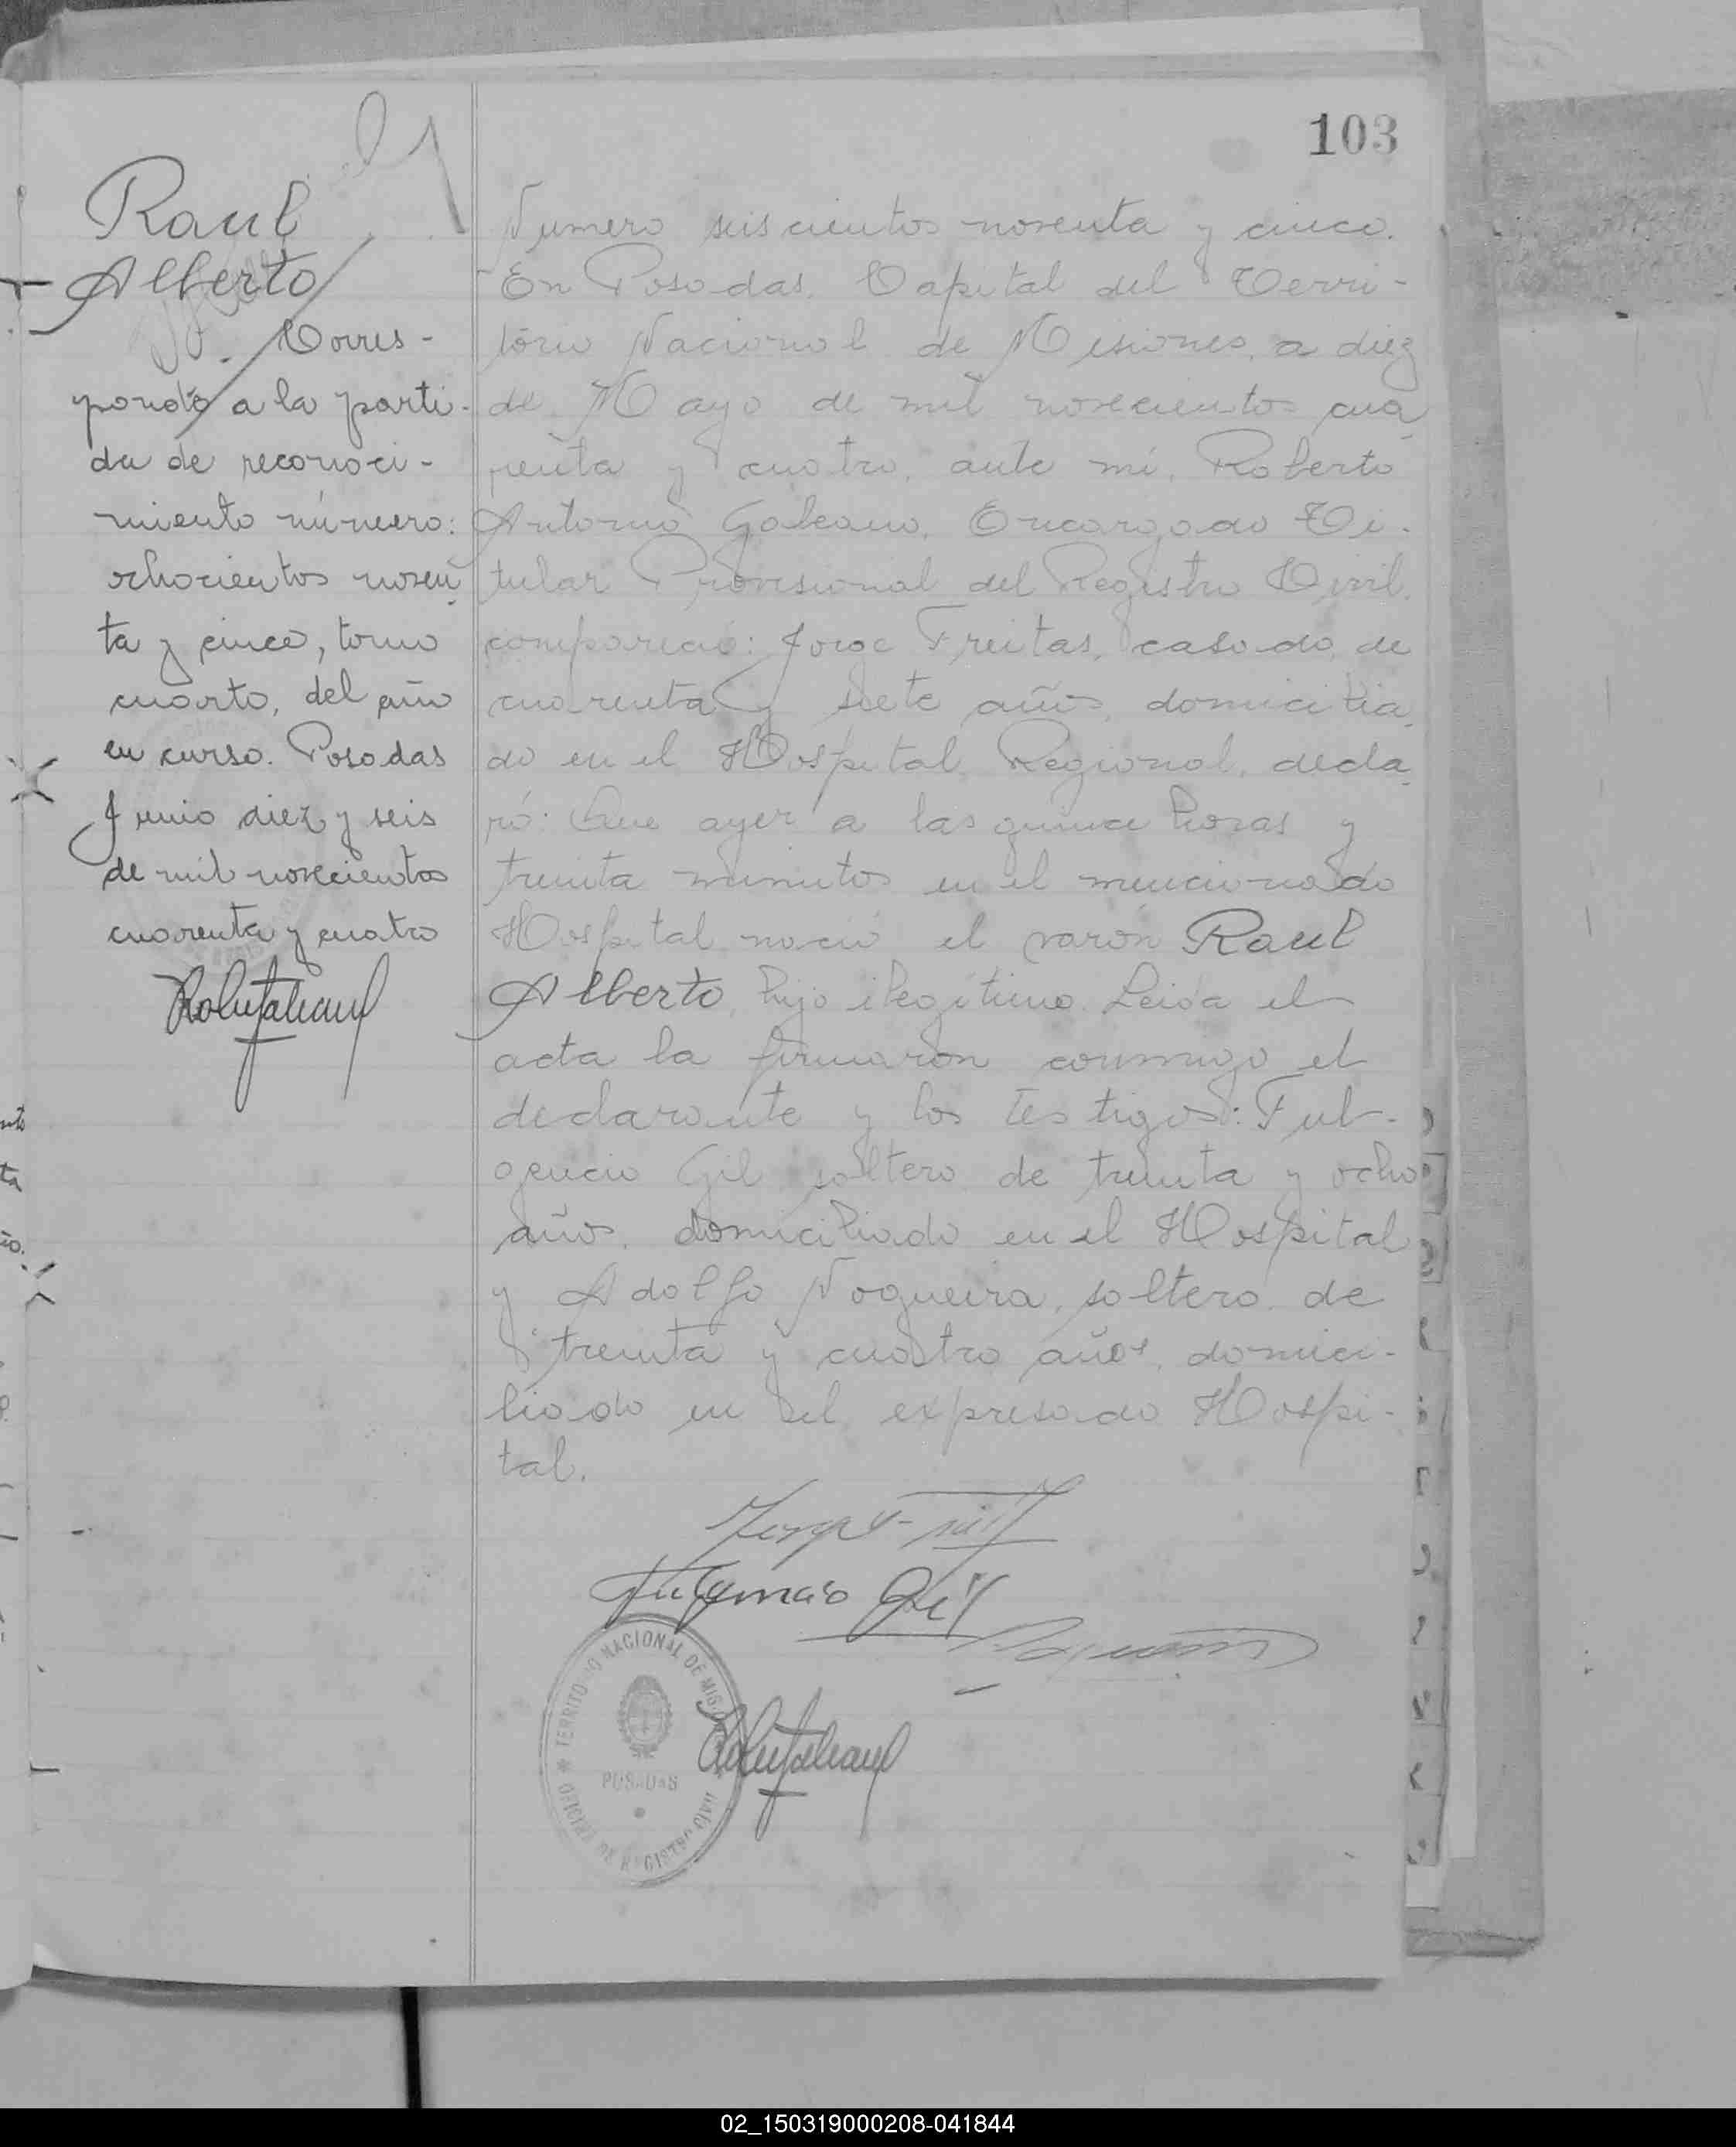 103
Raul
Alberto
Corres-
ponde a la parti-
da de reconoci-
miento número:
ochocientos noven
ta y cinco, tomo
cuarto, del año
en curso. Posadas
Junio diez y seis
de mil novecientos
cuarenta y cuatro
Numero seiscientos noventa y cinco.
En Posadas, Capital del Terri-
torio Nacional de Misiones, a diez
de Mayo de mil novecientos cua
renta y cuatro, ante mí, Roberto
Antonio Galeano, Encargado Ti-
tular Provisional del Registro Civil,
compareció: Jorge Freitas, casado, de
cuarenta y siete años, domicilia
do en el Hospital Regional, decla
ró: Que ayer a las quince horas y
treinta minutos en el mencionado
Hospital nació el varón Raul
Alberto, hijo ilegítimo. Leida el
acta la firmaron conmigo el
declarante y los testigos: Ful-
gencio Gil soltero de treinta y ocho
años, domiciliado en el Hospital
y Adolfo Nogueira, soltero, de
treinta y cuatro años, domici-
liado en el expresado Hospi-
tal.
Fulgencio Gil
TERRITORIO NACIONAL DE MISIONES
POSADAS
OFICINA DE REGISTRO CIVIL
02_150319000208-041844